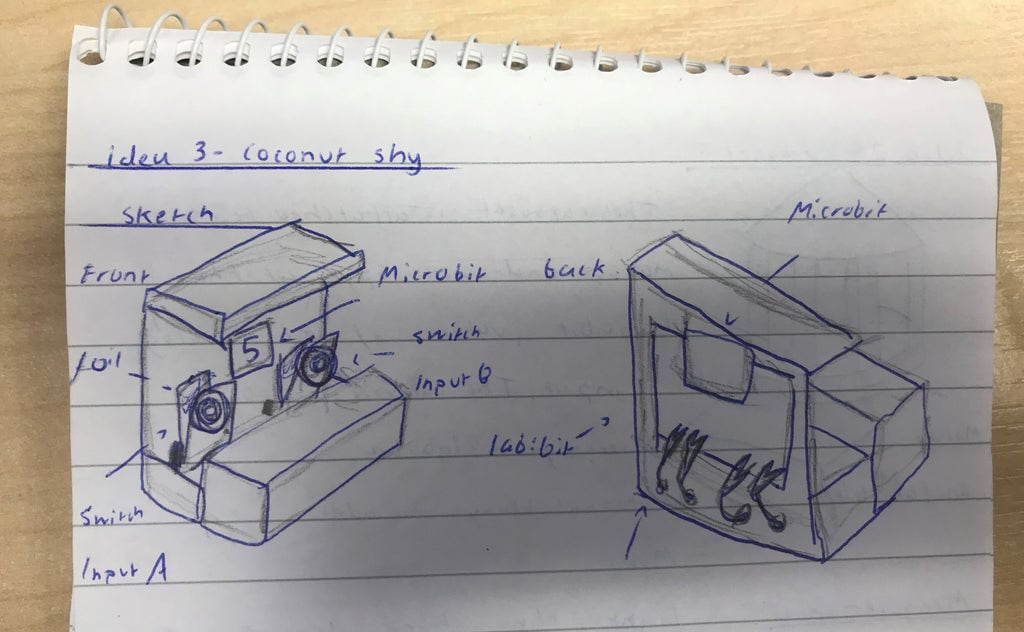 idea 3- Coconut shy
Sketch
Front
Microbit
foil
5
switch
input B
Switch
Input A
back
Microbit
labibit